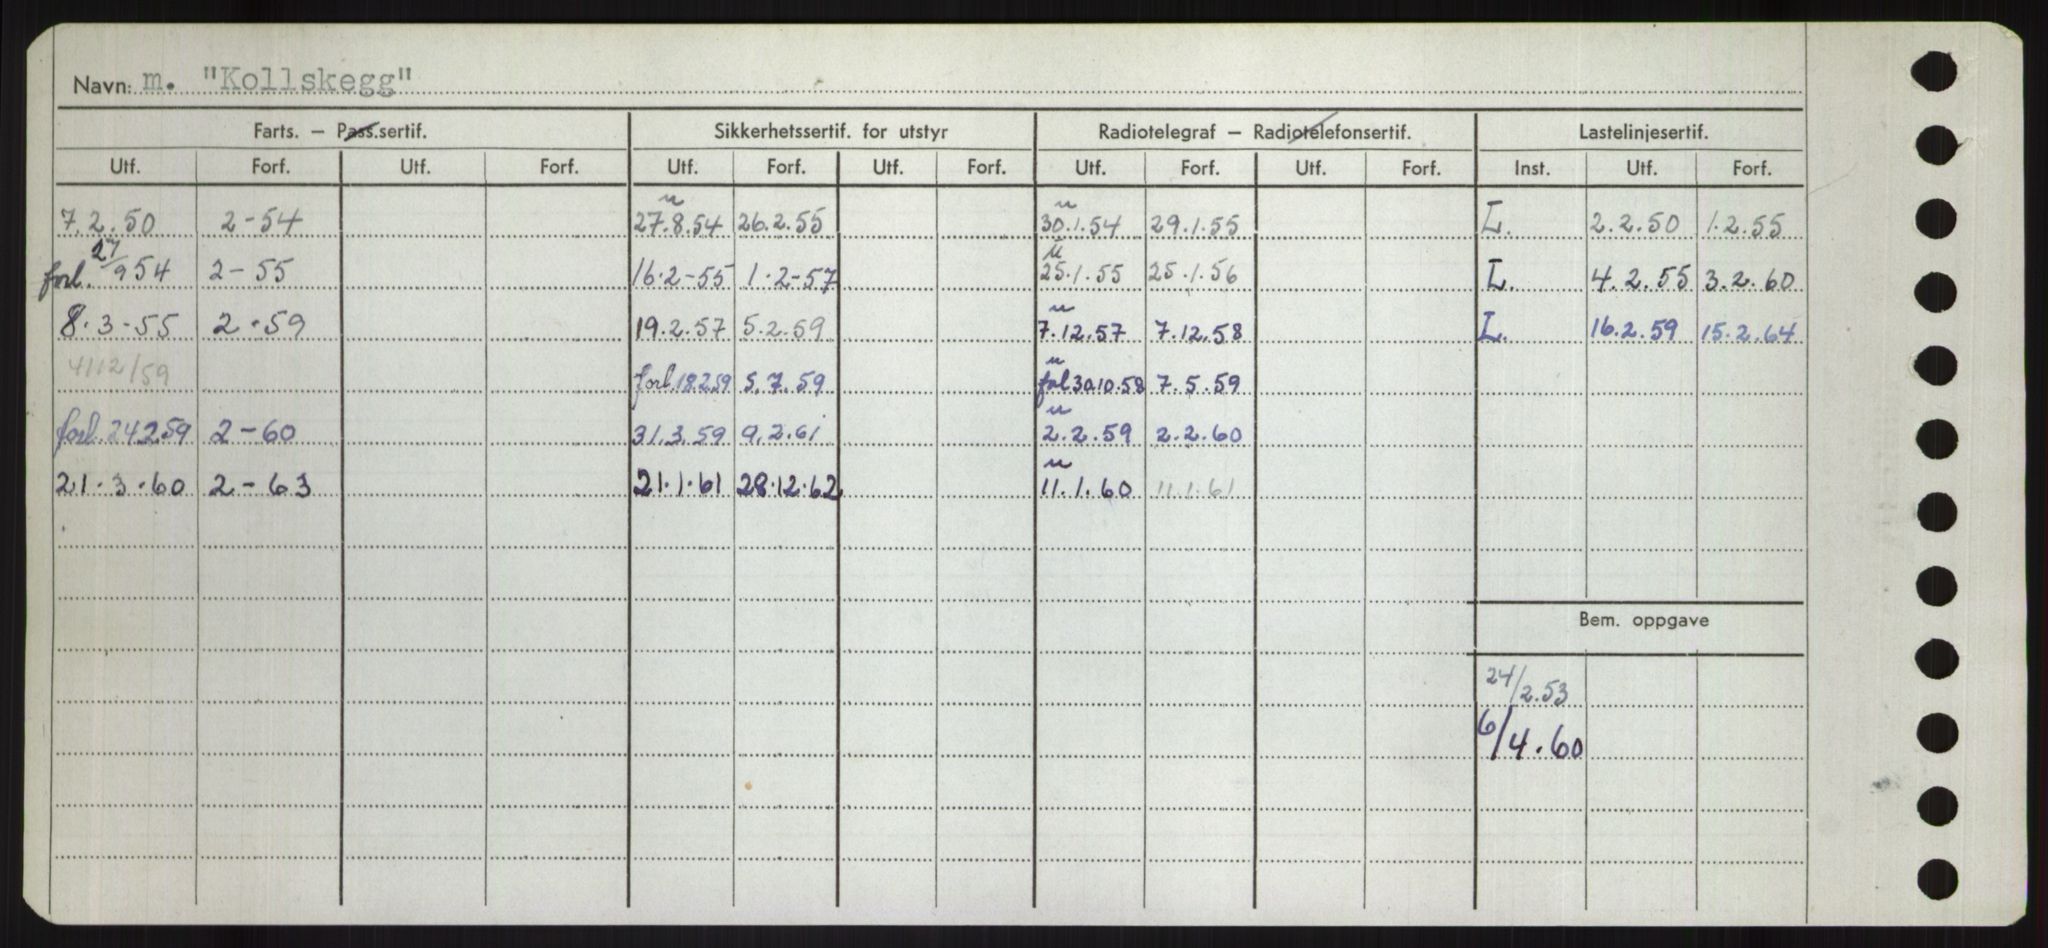 Navn: m. "Kollskegg"
Farts. – Pass.sertif. Sikkerhetssertif. for utstyr Radiotelegraf – Radiotelefonsertif. Lastelinjesertif.
Utf. Forf. Utf. Forf. Utf. Forf. Utf. Forf. Utf. Forf. Utf. Forf. Inst. Utf. Forf.
u u
7.2.50 2-54 27.8.54 26.2.55 30.1.54 29.1.55 L. 2.2.50 1.2.55
u
forl. 27/9 54 2-55 16.2-55 1.2-57 25.1.55 25.1.56 L. 4.2.55 3.2.60
u
8.3-55 2.59 19.2.57 5.2.59 7.12.57 7.12.58 L. 16.2.59 15.2.64
u
4112/59 forl. 18.2.59 5.7.59 forl 30.10.58 7.5.59
u
forl. 24.2.59 2-60 31.3.59 9.2.61 2.2.59 2.2.60
u
21.3.60 2-63 21.1.61 28.12.62 11.1.60 11.1.61
Bem. oppgave
24/2.53
6/4.60